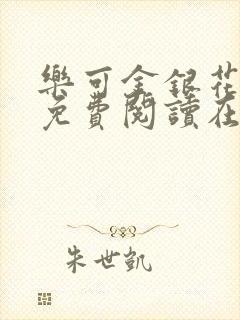 樂可金銀花
免費閱讀在
朱世凱